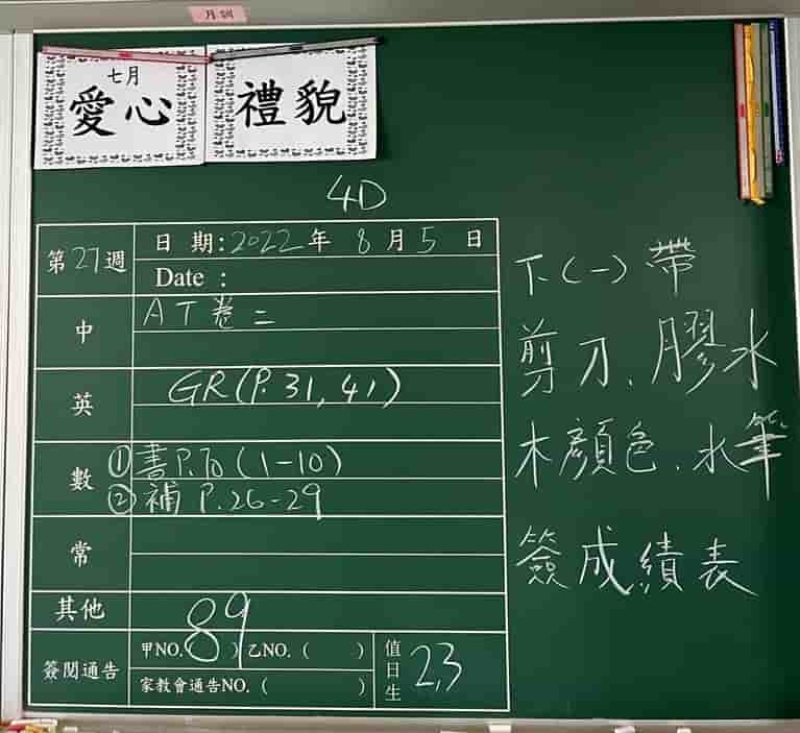 月訓
七月
愛心
禮貌
4D
第27週
日期:2022年8月5日
Date :
中
AT卷二
英
GR(P.31,41)
數
①書P.70(1-10)
②補P.26-29
常
其他
簽閱通告
甲NO.(89) 乙NO.( )
家教會通告NO.( )
值日生
2,3
下(一)帶
剪刀、膠水
木顏色、水筆
簽成績表